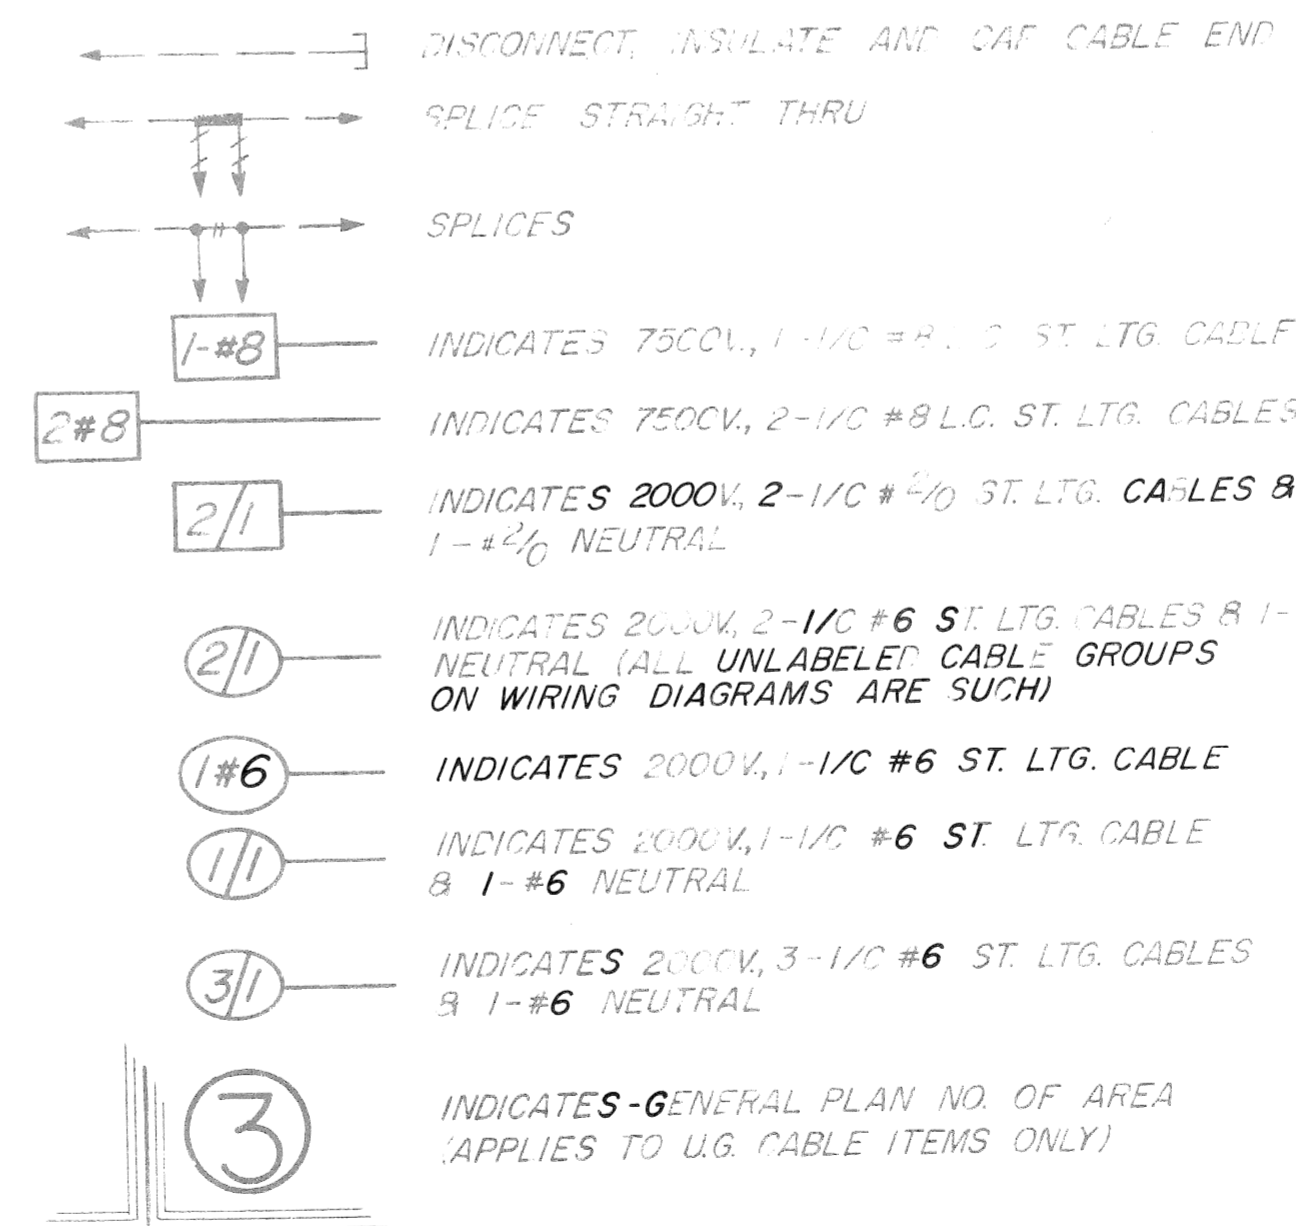 DISCONNECT, INSULATE AND CAP CABLE END
SPLICE STRAIGHT THRU
SPLICES
1-#8 INDICATES 7500V., 1-1/C #8 L.C. ST. LTG. CABLE
2#8 INDICATES 7500V., 2-1/C #8 L.C. ST. LTG. CABLES
2/1 INDICATES 2000V., 2-1/C #2/0 ST. LTG. CABLES &
1-#2/0 NEUTRAL
INDICATES 2000V., 2-1/C #6 ST. LTG. CABLES & 1-
2/1 NEUTRAL (ALL UNLABELED CABLE GROUPS
ON WIRING DIAGRAMS ARE SUCH)
1#6 INDICATES 2000V., 1-1/C #6 ST. LTG. CABLE
1/1 INDICATES 2000V., 1-1/C #6 ST. LTG. CABLE
& 1-#6 NEUTRAL
3/1 INDICATES 2000V., 3-1/C #6 ST. LTG. CABLES
& 1-#6 NEUTRAL
3 INDICATES-GENERAL PLAN NO. OF AREA
(APPLIES TO U.G. CABLE ITEMS ONLY)